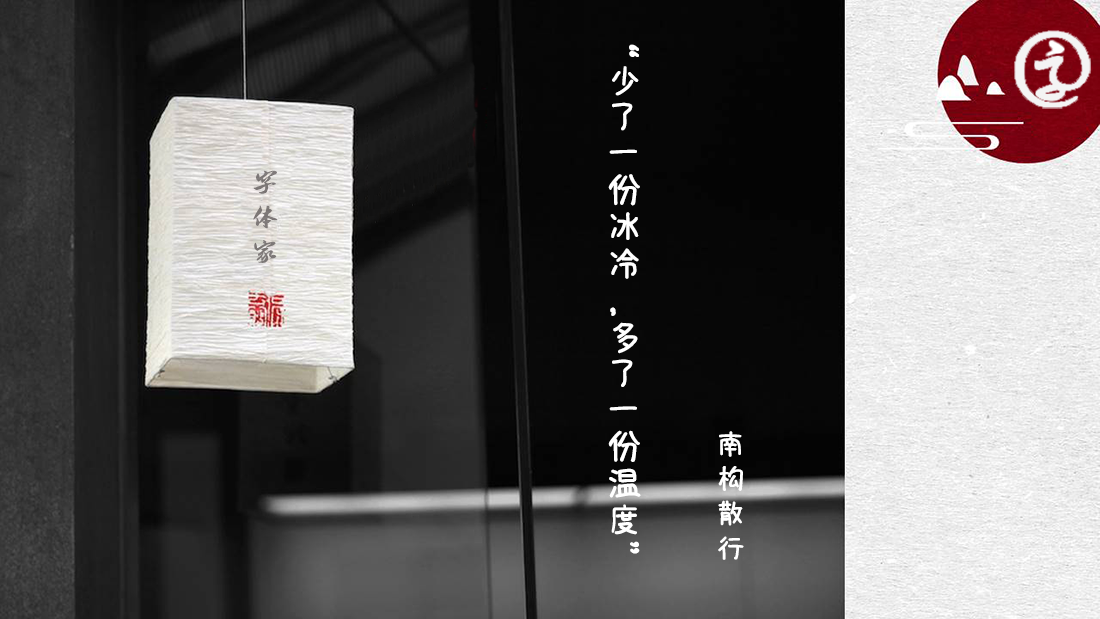 字体家
“少了一份冰冷,多了一份温度”
南构散行